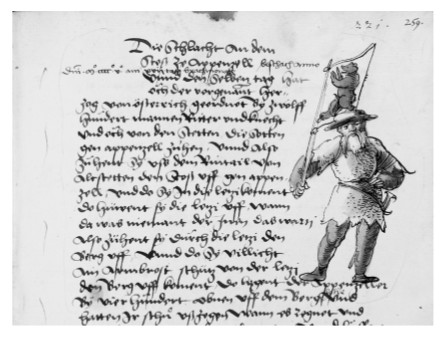 221. 259.
Die Schlacht An dem
Stoß ze Appenzell beschach anno
Und den selben tag hat
och der vorgenant her-
zog von österrich geordnet by zwölff
hundert mannen Ritter und knecht
und och von den Stetten die solten
gen appenzell ziehen. Unnd also
zuhent sy uff dem Rintail von
altstetten dem Stoß uff gen appen
zell. und do sy In die letzi koment
do huwent sy die letzi uff wann
da was niemant der Inen das wari
Also zuhent sy durch die letzi den
berg uff. Unnd do sy villicht
ain Armbrost schutz von der letzi
den Berg uff koment do lagent die Appenzeller
By vier hundert obnen uff dem Berg
hatten Ir schu ußzogen wann es regnet und